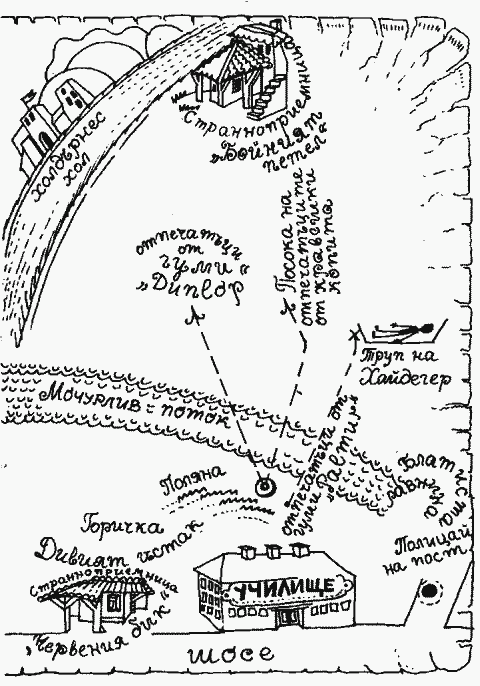 холдърнес
хол
Странноприемницата
„Бойният
петел“
отпечатъци
от
гуми
„Дънлоп“
Посока на
отпечатъците
от кравешки
копита
Труп на
Хайдегер
Мочурлив поток
отпечатъци от
гуми „Палтик“
Поляна
Блатиста
равнина
Горичка
Дивият гъстак
Полицай
на пост
Странноприемница
„Червения бик“
УЧИЛИЩЕ
шосе